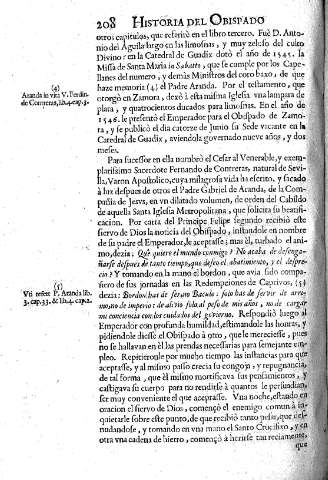 208 HISTORIA DEL OBISPADO
otros capitulos, que referirè en el libro tercero. Fuè D. Antonio
del Aguila largo en las limosnas, y muy zeloso del culto
Divino: en la Catedral de Guadix dotò el año de 1545. la
Missa de Santa Maria in Sabato, que se cumple por los Capellanes
del numero, y demàs Ministros del coro baxo, de que
haze memoria (4) el Padre Aranda. Por el testamento, que
otorgò en Zamora, dexò à esta misma Iglesia vna lampara de
plata, y quatrocientos ducados para limosnas. En el año de
1546. le presentò el Emperador para el Obispado de Zamora,
y se publicò el dia catorze de Junio su Sede vacante en la
Catedral de Guadix, aviendola governado nueve años, y dos
meses.
(4)
Aranda in vita V. Ferdin.
de Contreras, lib. 4. cap. 3.
Para sucessor en ella nombrò el Cesar al Venerable, y exemplarissimo
Sacerdote Fernando de Contreras, natural de Sevilla,
Varon Apostolico, cuya milagrosa vida ha escrito, y sacado
à luz despues de otros el Padre Gabriel de Aranda, de la Compañia
de Jesvs, en vn dilatado volumen, de orden del Cabildo
de aquella Santa Iglesia Metropolitana, que solicita su beatificacion.
Por carta del Principe Felipe segundo recibiò este
siervo de Dios la noticia del Obispado, instandole en nombre
de su padre el Emperador, le aceptasse; mas èl, turbado el animo,
dezia: Què quiere el mundo conmigo? No acaba de desengañarse
despues de tanto tiempo, que deseo el abatimiento, y el desprecio?
Y tomando en la mano el bordon, que avia sido compañero
de sus jornadas en las Redenpciones de Captivos, (5)
dezia: Bordon has de ser mi Baculo: solo has de servir de arrimo,
no de imperio: de alivio sì al peso de mis años, no de cargar
mi conciencia con los cuidados del govierno. Respondiò luego al
Emperador con profunda humildad, estimandole las honras, y
pidiendole diesse el Obispado à otro, que le mereciesse, pues
no se hallavan en èl las prendas necessarias para semejante empleo.
Repitieronle por mucho tiempo las instancias para que
aceptasse, y al mismo passo crecia su congoja, y repugnancia,
de tal forma, que èl mismo mortificava sus pensamientos, y
castigava su cuerpo para no rendirse à quantos le persuadian,
ser muy conveniente el que aceptasse. Vna noche, estando en
oracion el siervo de Dios, començò el enemigo comun à inquietarle
sobre este punto, de que recibiò tanto pesar, que desnudandose,
y tomando en vna mano el Santo Crucifixo, y en
otra vna cadena de hierro, començò à herirse tan reciamente,
que
(5)
Vti refert P. Aranda lib.
3. cap. 33. & lib. 4. cap. 2.